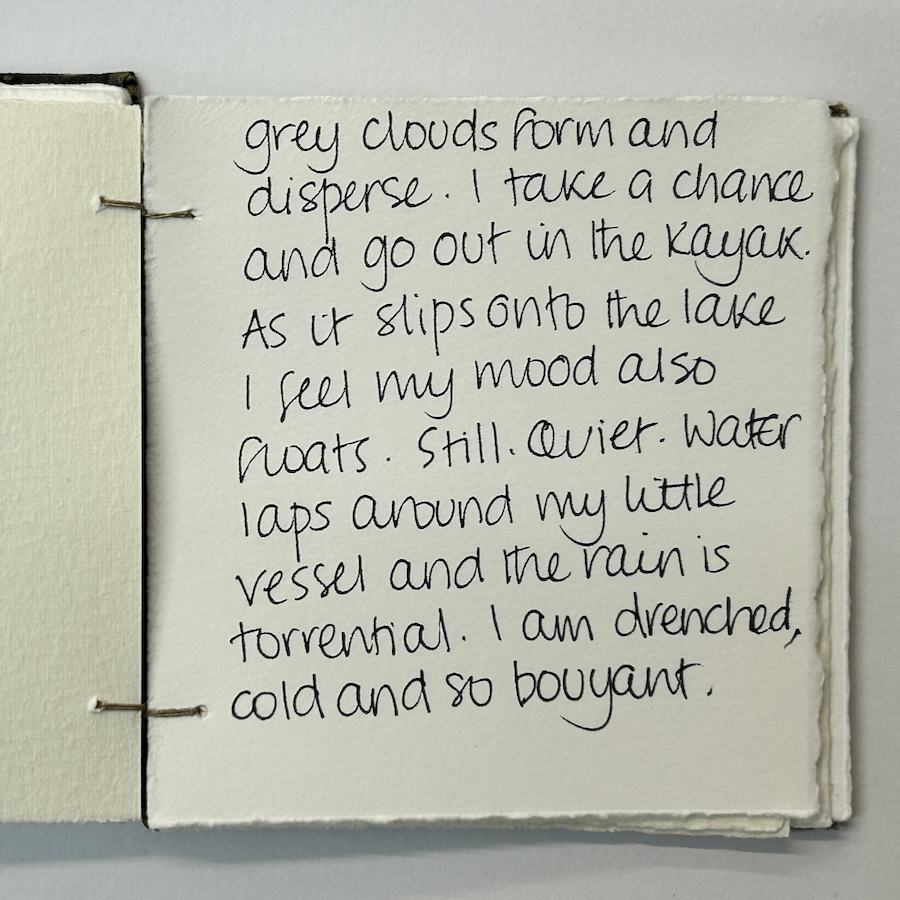 grey clouds form and
disperse. I take a chance
and go out in the kayak.
As it slips onto the lake
I feel my mood also
floats. Still. Quiet. Water
laps around my little
vessel and the rain is
torrential. I am drenched,
cold and so bouyant.